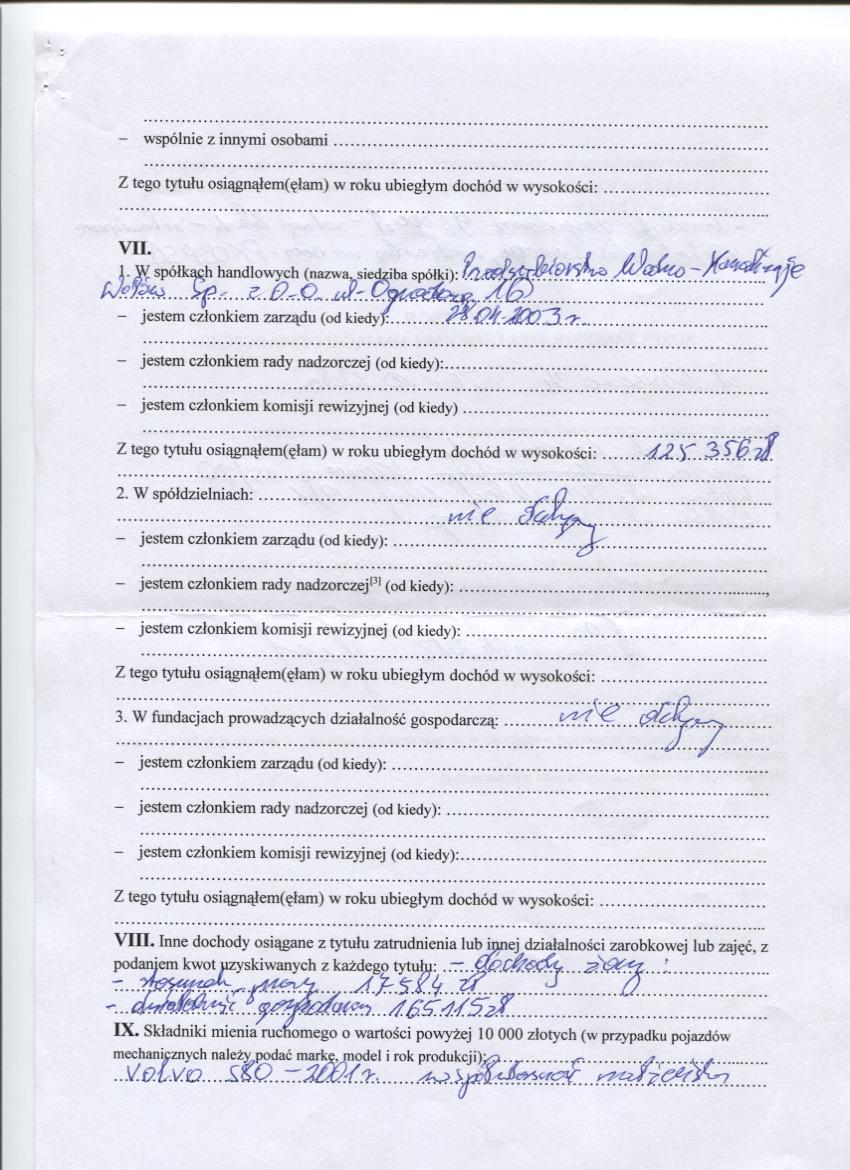 – wspólnie z innymi osobami
Z tego tytułu osiągnąłem(ęłam) w roku ubiegłym dochód w wysokości:
VII.
1. W spółkach handlowych (nazwa, siedziba spółki): Przedsiębiorstwo Wodno-Kanalizacyjne
Wołów Sp. z o.o. ul. Ogrodowa 16
– jestem członkiem zarządu (od kiedy): 28.04.2003 r.
– jestem członkiem rady nadzorczej (od kiedy):
– jestem członkiem komisji rewizyjnej (od kiedy)
Z tego tytułu osiągnąłem(ęłam) w roku ubiegłym dochód w wysokości: 125 356 zł
2. W spółdzielniach:
nie dotyczy
– jestem członkiem zarządu (od kiedy):
– jestem członkiem rady nadzorczej[3] (od kiedy):
– jestem członkiem komisji rewizyjnej (od kiedy):
Z tego tytułu osiągnąłem(ęłam) w roku ubiegłym dochód w wysokości:
3. W fundacjach prowadzących działalność gospodarczą: nie dotyczy
– jestem członkiem zarządu (od kiedy):
– jestem członkiem rady nadzorczej (od kiedy):
– jestem członkiem komisji rewizyjnej (od kiedy):
Z tego tytułu osiągnąłem(ęłam) w roku ubiegłym dochód w wysokości:
VIII. Inne dochody osiągane z tytułu zatrudnienia lub innej działalności zarobkowej lub zajęć, z
podaniem kwot uzyskiwanych z każdego tytułu: – dochody żony :
– stosunek pracy 17584 zł
– działalność gospodarcza 165115 zł
IX. Składniki mienia ruchomego o wartości powyżej 10 000 złotych (w przypadku pojazdów
mechanicznych należy podać markę, model i rok produkcji):
Volvo S80 – 2001 r. współwłasność małżeńska